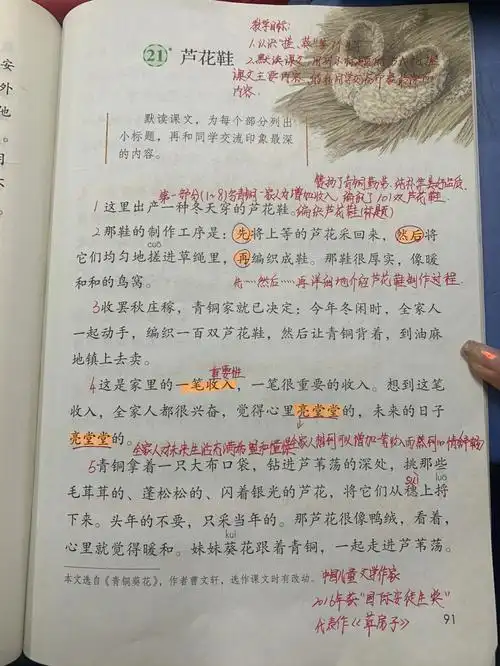 教学目标:
21* 芦花鞋
1.认识"搓、葵"等
2.默读课文
课文主要内容
内容.
默读课文,为每个部分列出
小标题,再和同学交流印象最深
的内容。
赞扬了青铜勤劳、纯朴 品质.
第一部分(1~8)写青铜一家人为增加收入,编织了101双芦花鞋.
1这里出产一种冬天穿的芦花鞋。编织芦花鞋(标题)
2那鞋的制作工序是:先将上等的芦花采回来,然后将
cuō
它们均匀地搓进草绳里,再编织成鞋。那鞋很厚实,像暖
和和的鸟窝。先……然后……再 详细地介绍芦花鞋制作过程.
3收罢秋庄稼,青铜家就已决定:今年冬闲时,全家人
一起动手,编织一百双芦花鞋,然后让青铜背着,到油麻
地镇上去卖。
重要性
4这是家里的一笔收入,一笔很重要的收入。想到这笔
收入,全家人都很兴奋,觉得心里亮堂堂的,未来的日子
亮堂堂的。全家人对未来生活充满希望和憧憬
5青铜拿着一只大布口袋,钻进芦苇荡的深处,挑那些
suì luō
毛茸茸的、蓬松松的、闪着银光的芦花,将它们从穗上捋
下来。头年的不要,只采当年的。那芦花很像鸭绒,看着,
kuí
心里就觉得暖和。妹妹葵花跟着青铜,一起走进芦苇荡。
本文选自《青铜葵花》,作者曹文轩,选作课文时有改动。
中国儿童文学作家
2016年获"国际安徒生奖"
代表作《草房子》
91